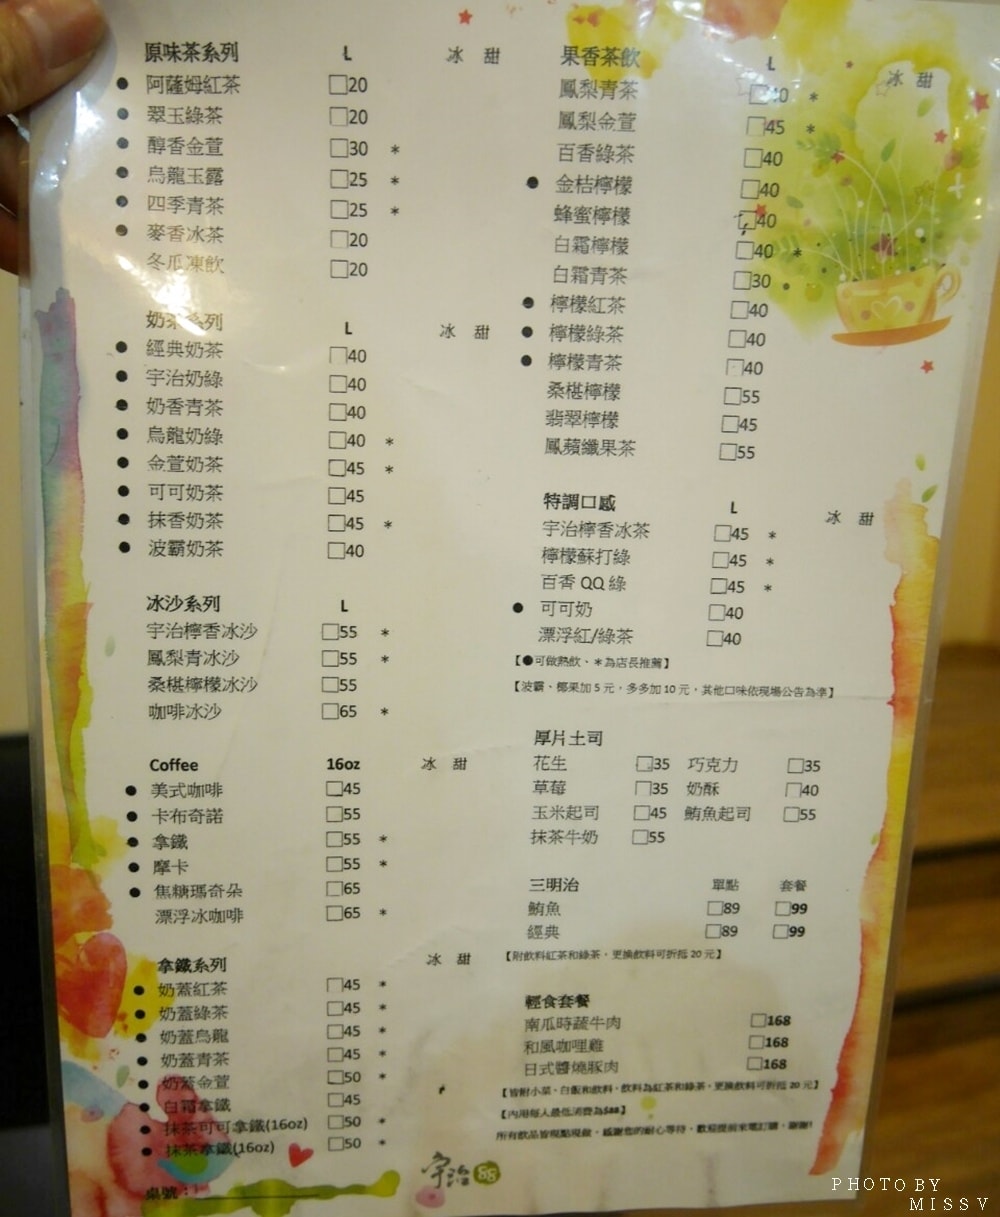 原味茶系列 L 冰 甜
● 阿薩姆紅茶 □20
● 翠玉綠茶 □20
● 醇香金萱 □30 *
● 烏龍玉露 □25 *
● 四季青茶 □25 *
● 麥香冰茶 □20
冬瓜凍飲 □20
奶茶系列 L 冰 甜
● 經典奶茶 □40
● 宇治奶綠 □40
● 奶香青茶 □40
● 烏龍奶綠 □40 *
● 金萱奶茶 □45 *
● 可可奶茶 □45
● 抹香奶茶 □45 *
● 波霸奶茶 □40
冰沙系列 L
宇治檸香冰沙 □55 *
鳳梨青冰沙 □55 *
桑椹檸檬冰沙 □55
咖啡冰沙 □65 *
Coffee 16oz 冰 甜
● 美式咖啡 □45
● 卡布奇諾 □55
● 拿鐵 □55 *
● 摩卡 □55 *
● 焦糖瑪奇朵 □65
漂浮冰咖啡 □65 *
拿鐵系列 冰 甜
● 奶蓋紅茶 □45 *
● 奶蓋綠茶 □45 *
● 奶蓋烏龍 □45 *
● 奶蓋青茶 □45 *
● 奶蓋金萱 □50 *
● 白霜拿鐵 □45
● 抹茶可可拿鐵(16oz) □50 *
● 抹茶拿鐵(16oz) □50 *
桌號：
果香茶飲 L 冰 甜
鳳梨青茶 □40 *
鳳梨金萱 □45 *
百香綠茶 □40
● 金桔檸檬 □40
蜂蜜檸檬 □40
白霜檸檬 □40 *
白霜青茶 □30
● 檸檬紅茶 □40
● 檸檬綠茶 □40
● 檸檬青茶 □40
桑椹檸檬 □55
翡翠檸檬 □45
鳳蘋纖果茶 □55
特調口感 L 冰 甜
宇治檸香冰茶 □45 *
檸檬蘇打綠 □45 *
百香 QQ 綠 □45 *
● 可可奶 □40
漂浮紅/綠茶 □40
【●可做熱飲、＊為店長推薦】
【波霸、椰果加 5 元，多多加 10 元，其他口味依現場公告為準】
厚片土司
花生 □35 巧克力 □35
草莓 □35 奶酥 □40
玉米起司 □45 鮪魚起司 □55
抹茶牛奶 □55
三明治 單點 套餐
鮪魚 □89 □99
經典 □89 □99
【附飲料紅茶和綠茶，更換飲料可折抵 20 元】
輕食套餐
南瓜時蔬牛肉 □168
和風咖哩雞 □168
日式醬燒豚肉 □168
【皆附小菜、白飯和飲料，飲料為紅茶和綠茶，更換飲料可折抵 20 元】
【內用每人最低消費為$88】
所有飲品皆現點現做，感謝您的耐心等待，歡迎提前來電訂購，謝謝!
宇治 88
PHOTO BY
MISSV